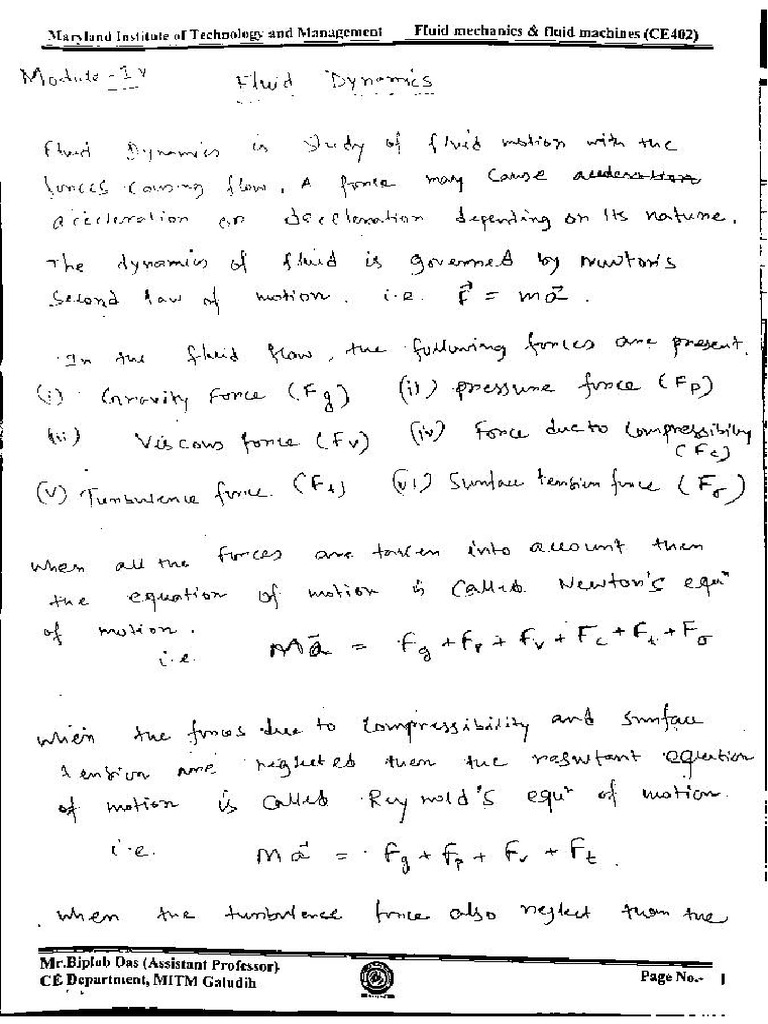 Maryland Institute of Technology and Management Fluid mechanics & fluid machines (CE402)
Module - IV Fluid Dynamics
Fluid Dynamics is study of fluid motion with the
forces causing flow. A force may cause acederation
acceleration or decceleration depending on its nature.
The dynamics of fluid is governed by Newton's
Second law of motion. i.e. F⃗ = ma⃗.
In the fluid flow, the following forces are present.
(i) Gravity Force (Fg) (ii) pressure force (Fp)
(iii) Viscous force (Fv) (iv) Force due to Compressibility
(Fc)
(v) Turbulence force. (Ft) (vi) Surface tension force (Fσ)
When all the forces are taken into account then
the equation of motion is called Newton's equⁿ
of motion.
i.e. Ma⃗ = Fg + Fp + Fv + Fc + Ft + Fσ
When the forces due to compressibility and surface
tension are neglected then the resultant equation
of motion is called Reynold's equⁿ of motion.
i.e. Ma⃗ = Fg + Fp + Fv + Ft.
When the turbulence force also neglect then the
Mr.Biplab Das (Assistant Professor)
CE Department, MITM Galudih Page No.- 1